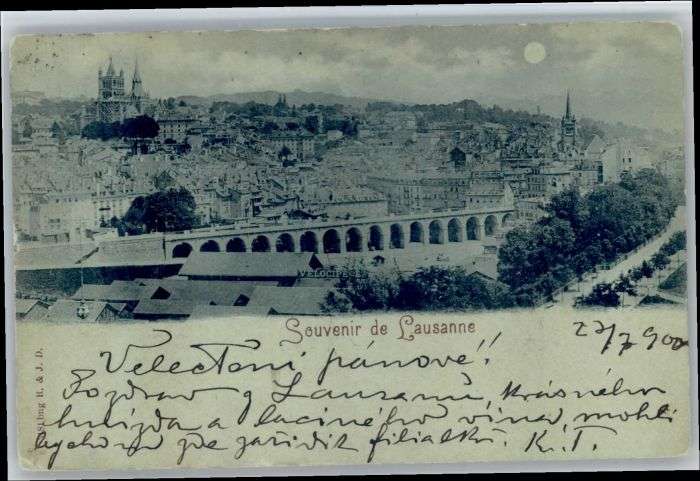 VELOCIPE
Souvenir de Lausanne
23/7 900
Velectění pánové!!
Pozdrav z Lausanu, krásného
hnízda a laciného vína, mohli
bychom zde zařídit filialku. K. T.
R. & J. D.